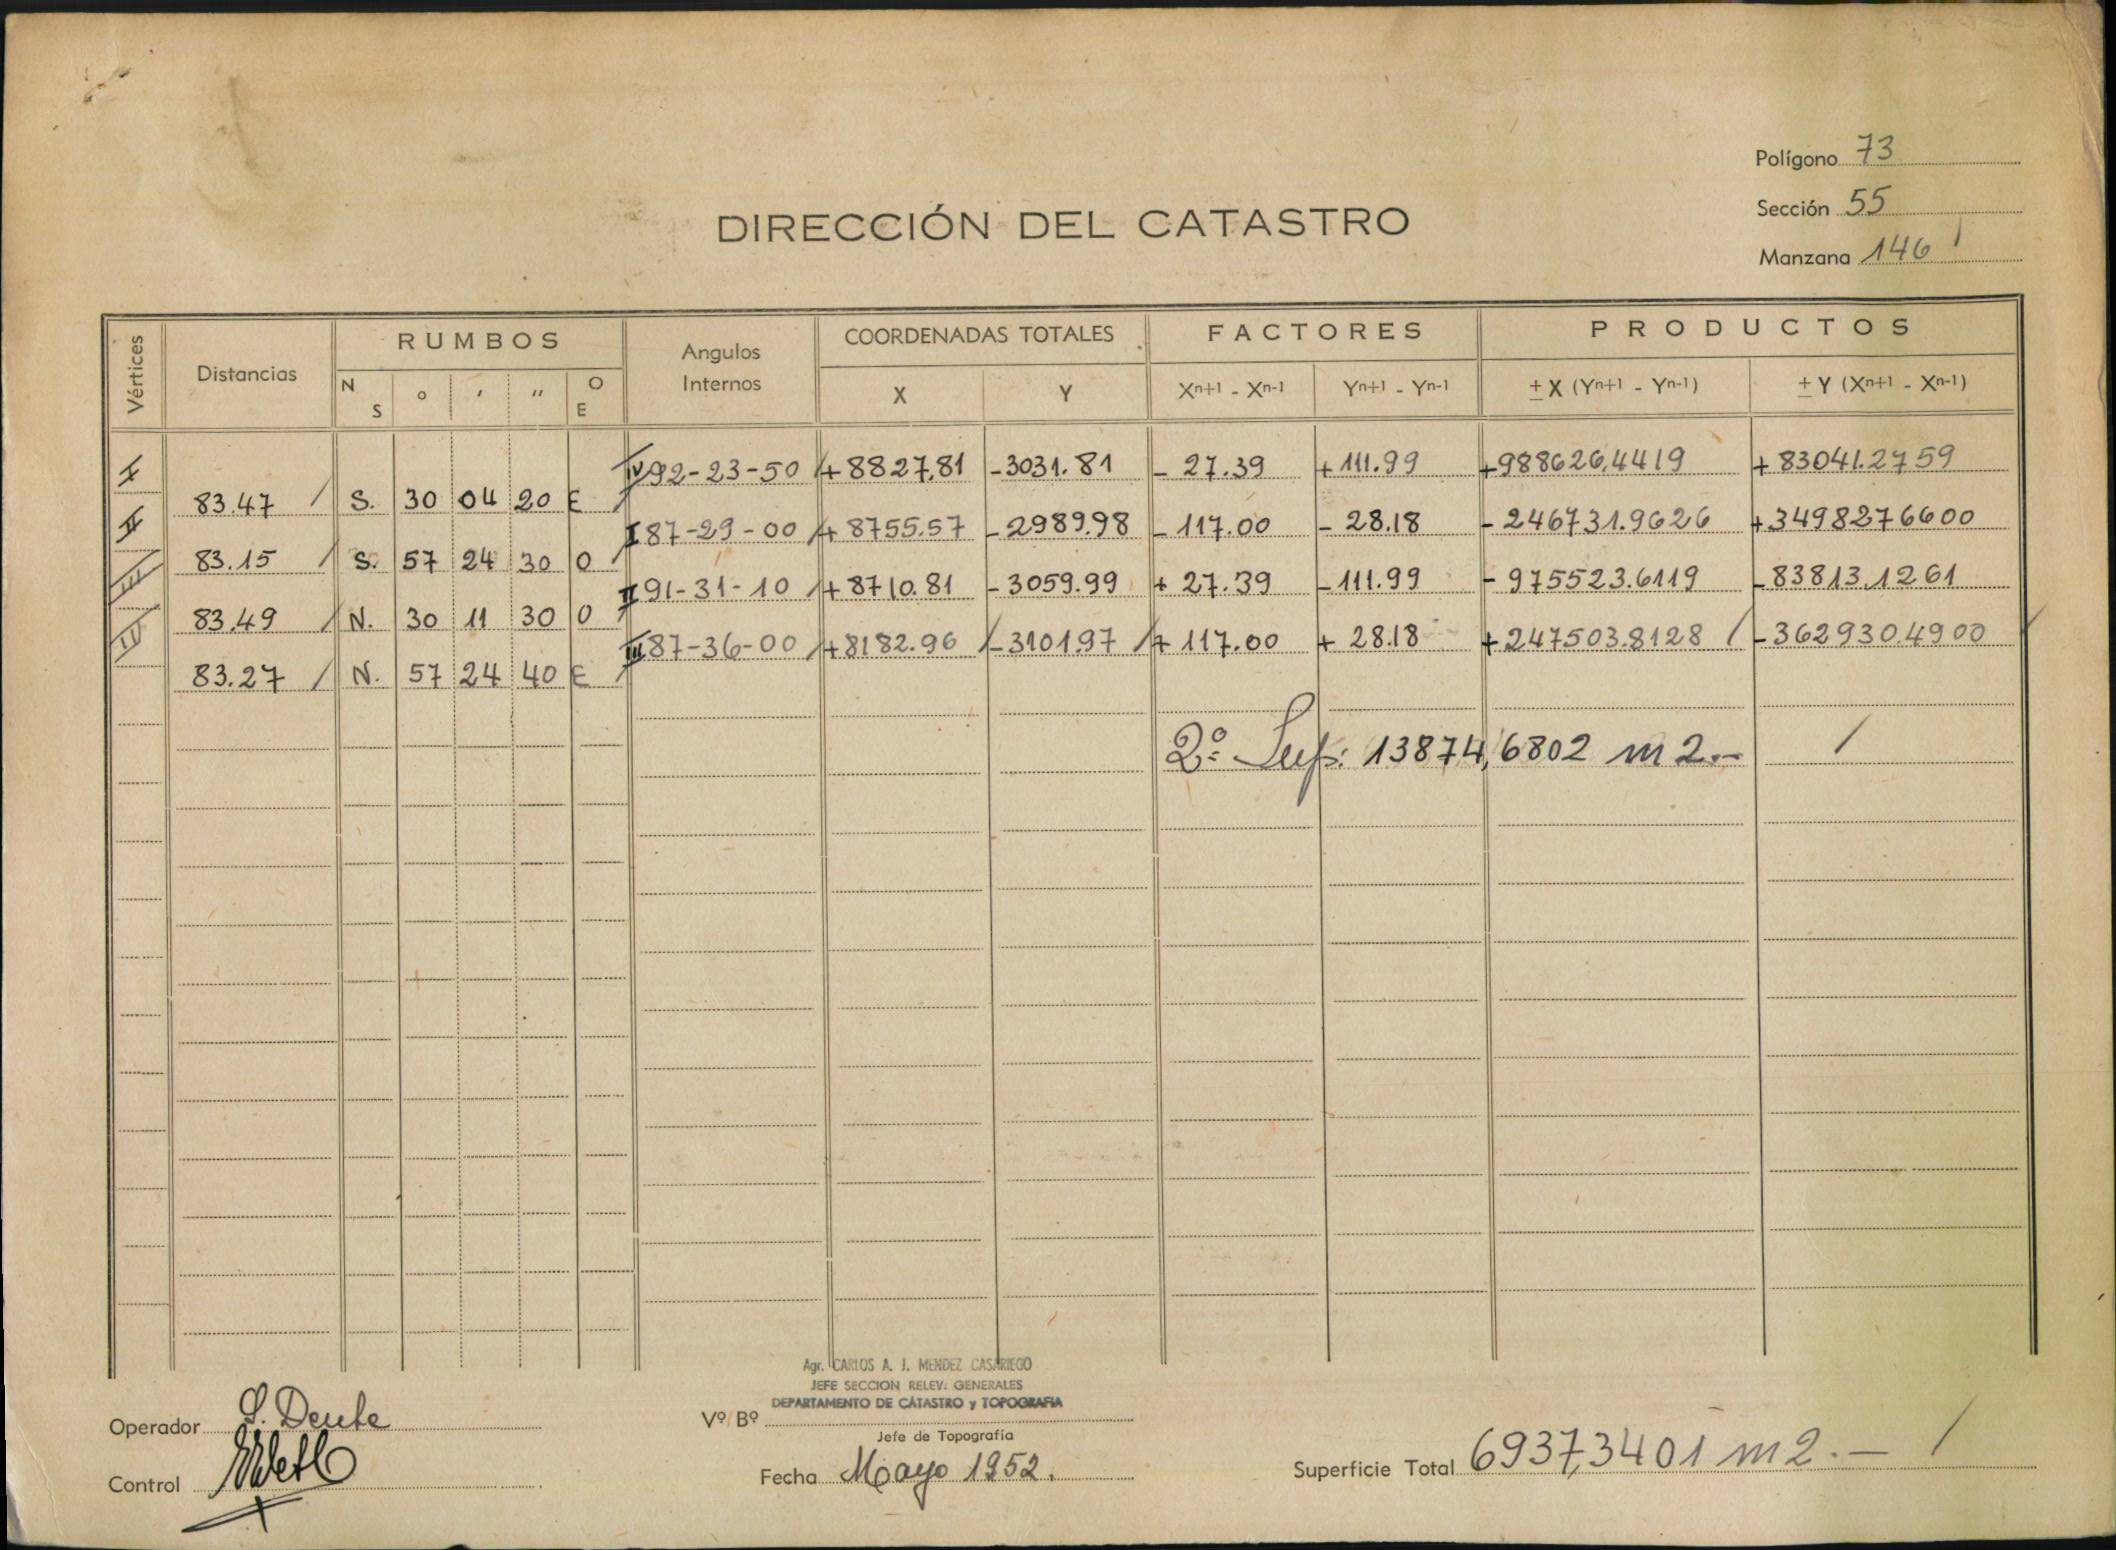 Polígono 73
Sección 55
DIRECCIÓN DEL CATASTRO
Manzana 146
Vértices Distancias RUMBOS Angulos Internos COORDENADAS TOTALES FACTORES PRODUCTOS
N S ° ' '' O E X Y Xn+1 - Xn-1 Yn+1 - Yn-1 ± X (Yn+1 - Yn-1) ± Y (Xn+1 - Xn-1)
I IV 92-23-50 +8827,81 -3031.81 - 27.39 +111.99 +988626,4419 +83041.2759
83.47 S. 30 04 20 E
II I 87-29-00 +8755.57 -2989.98 -117.00 - 28.18 -246731.9626 +349827.6600
83.15 S. 57 24 30 O
III II 91-31-10 +8710.81 -3059.99 + 27.39 -111.99 -975523.6119 -83813.1261
83.49 N. 30 11 30 O
IV III 87-36-00 +8182.96 -3101.97 + 117.00 + 28.18 +247503.8128 -362930.4900
83.27 N. 57 24 40 E
2º= Sup: 13874,6802 m2.-
Agr. CARLOS A. J. MENDEZ CASARIEGO
JEFE SECCION RELEV. GENERALES
DEPARTAMENTO DE CATASTRO y TOPOGRAFIA
Operador S. Dente
Vº Bº
Jefe de Topografía
Control
Fecha Mayo 1952.
Superficie Total 6937,3401 m2.-